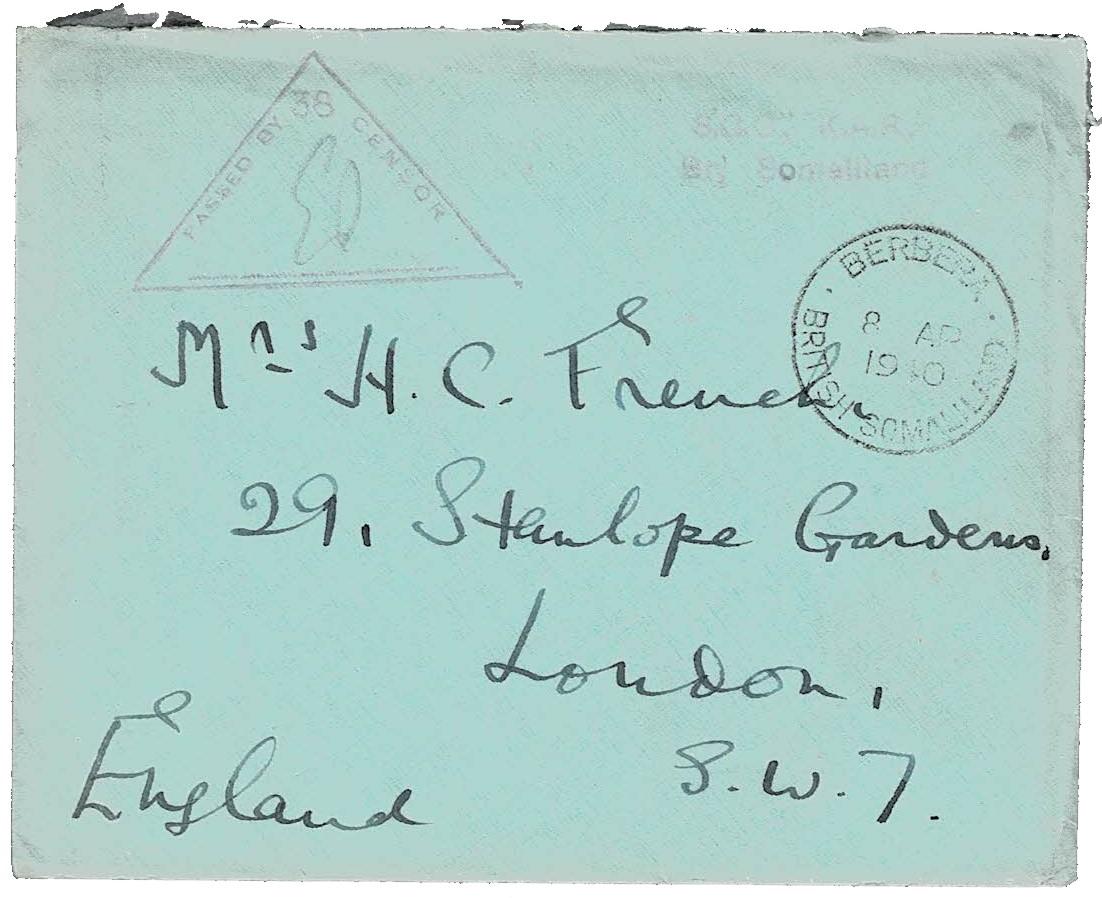 PASSED BY 38 CENSOR
Brit Somaliland
BERBERA
8 AP
1940
BRITISH SOMALILAND
Mrs H. C. French,
29, Stanhope Gardens,
London,
S.W.7.
England